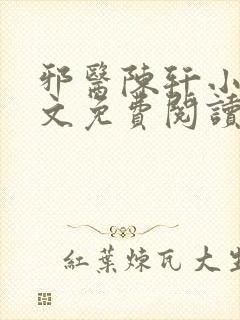 邪醫陳軒小
文免費閱讀
紅葉煉瓦大